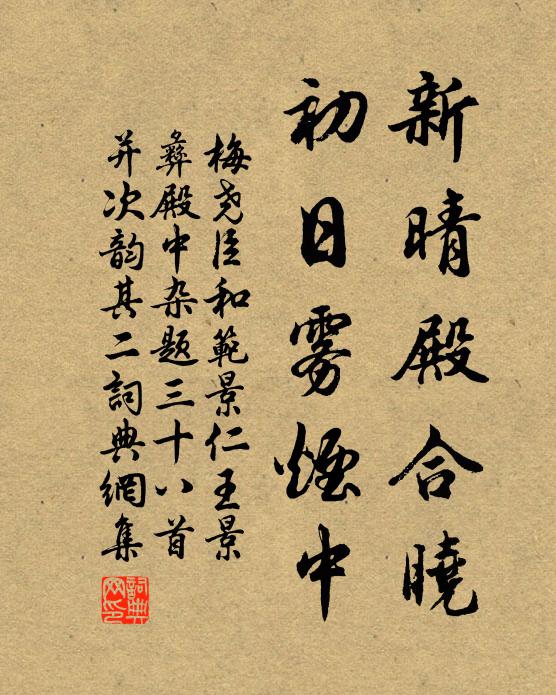 新晴殿合曉
初日霧煙中
梅尭臣和範景仁王景
彝殿中杂题三十八首
并次韵其二詞典網集
詞典网印